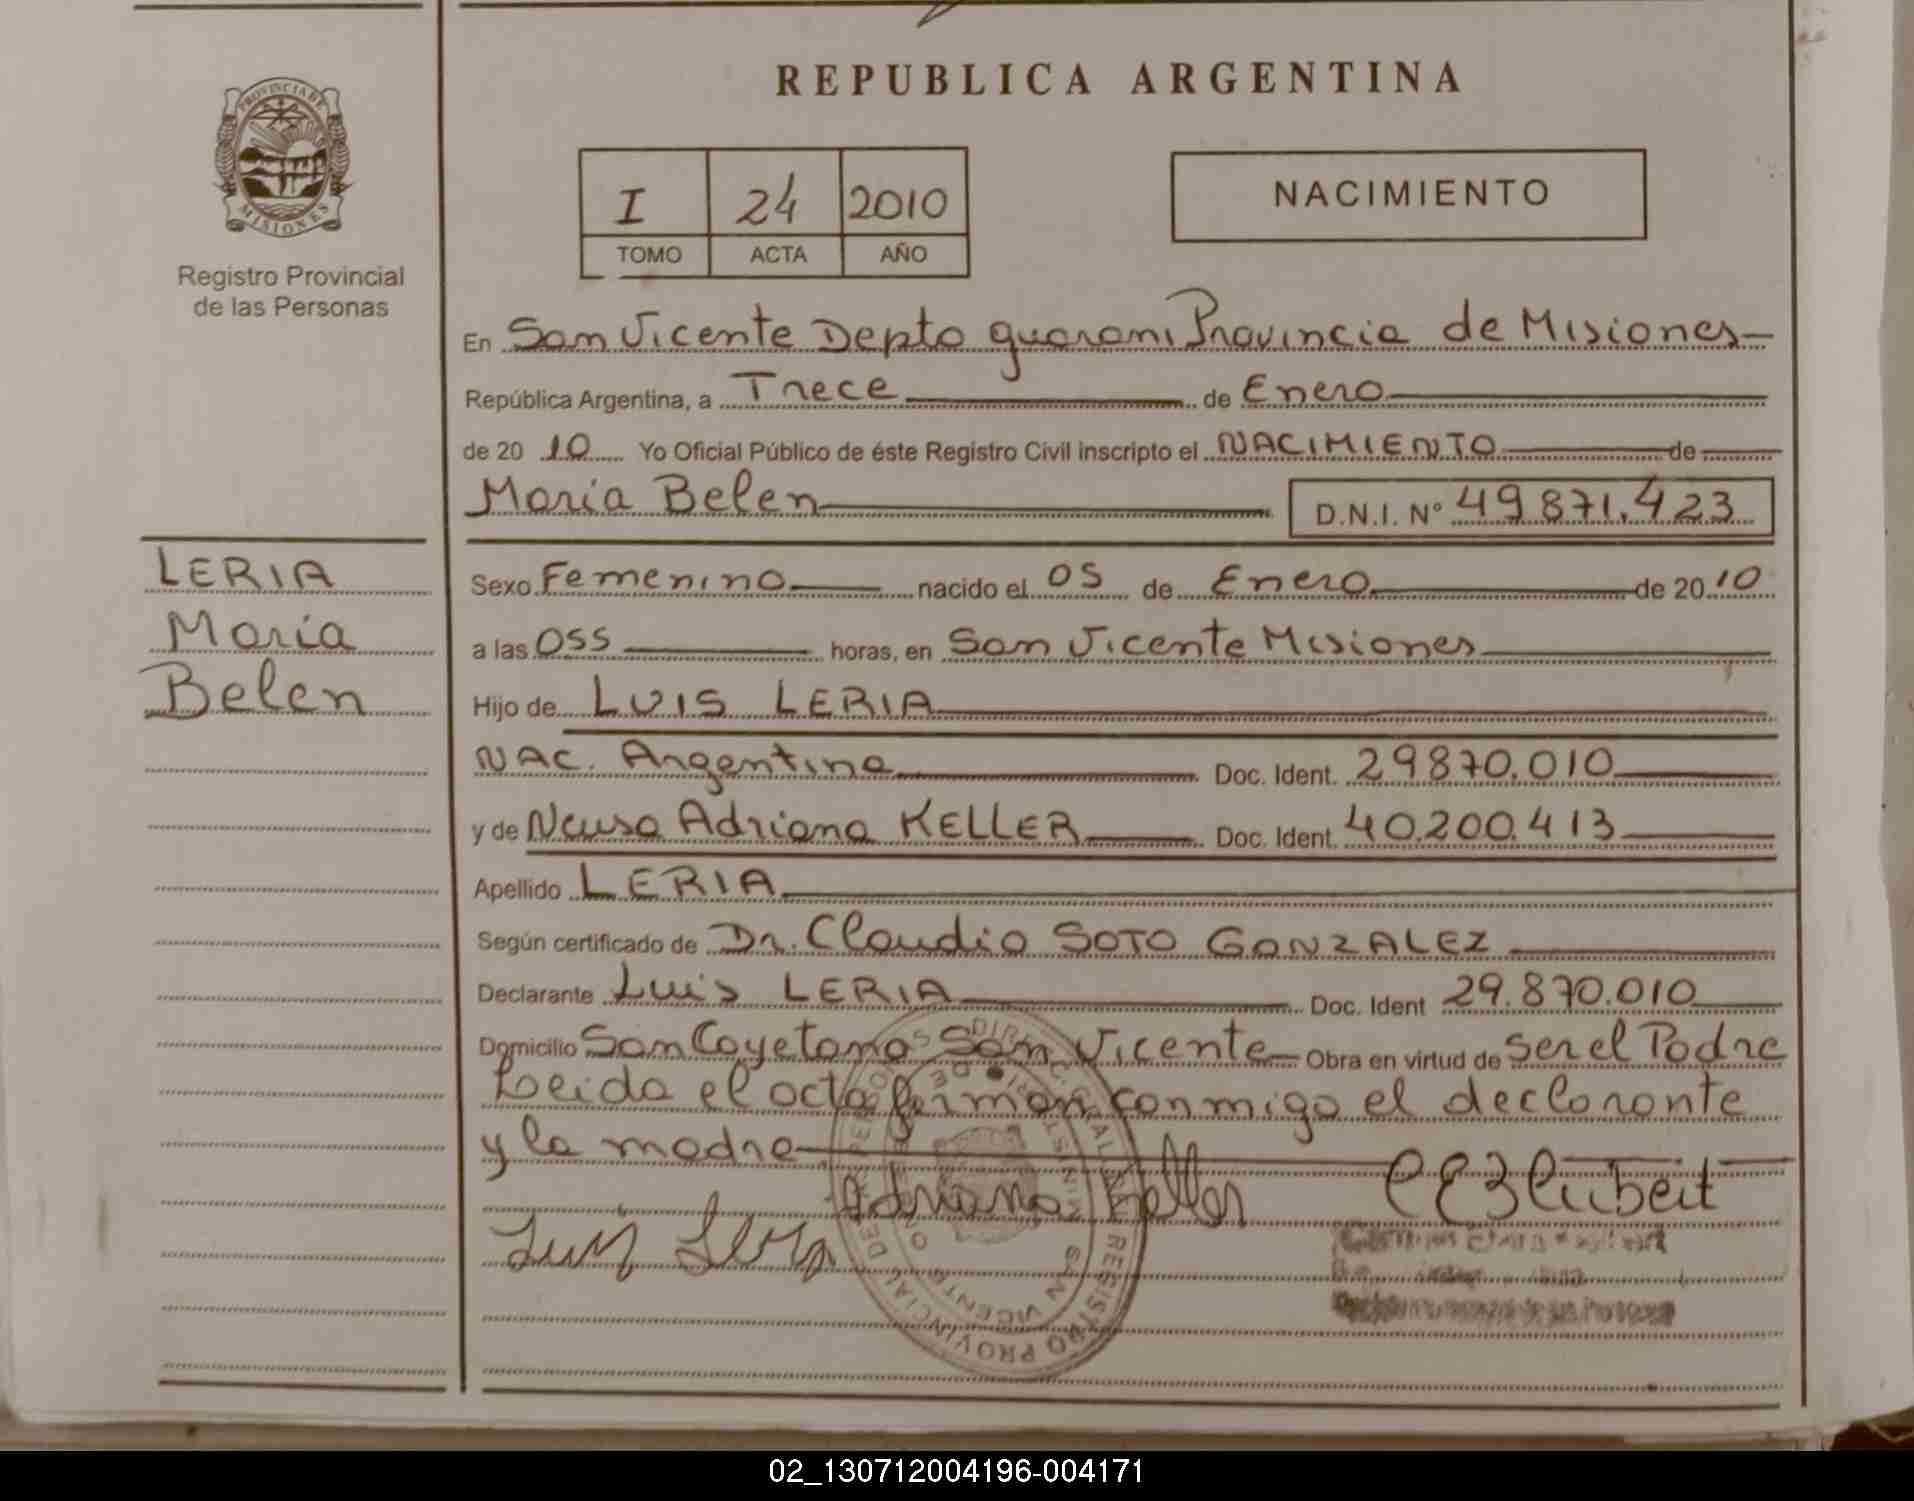 REPUBLICA ARGENTINA
PROVINCIA DE
MISIONES
Registro Provincial
de las Personas
I 24 2010
TOMO ACTA AÑO
NACIMIENTO
En San Vicente Depto guarani Provincia de Misiones
República Argentina, a Trece de Enero
de 20 10 Yo Oficial Público de éste Registro Civil inscripto el NACIMIENTO de
Maria Belen D.N.I. Nº 49871.423
LERIA
Maria
Belen
Sexo Femenino nacido el 05 de Enero de 20 10
a las 055 horas, en San Vicente Misiones
Hijo de LUIS LERIA
NAC. Argentina Doc. Ident. 29870.010
y de Neusa Adriana KELLER Doc. Ident. 40.200.413
Apellido LERIA
Según certificado de Dr. Claudio SOTO GONZALEZ
Declarante Luis LERIA Doc. Ident 29.870.010
Domicilio San Cayetano San Vicente Obra en virtud de Ser el Padre
Leida el acta firman conmigo el declarante
y la madre
Adriana Keller
Luis Leria
REGISTRO PROVINCIAL DE
SAN VICENTE
02_130712004196-004171